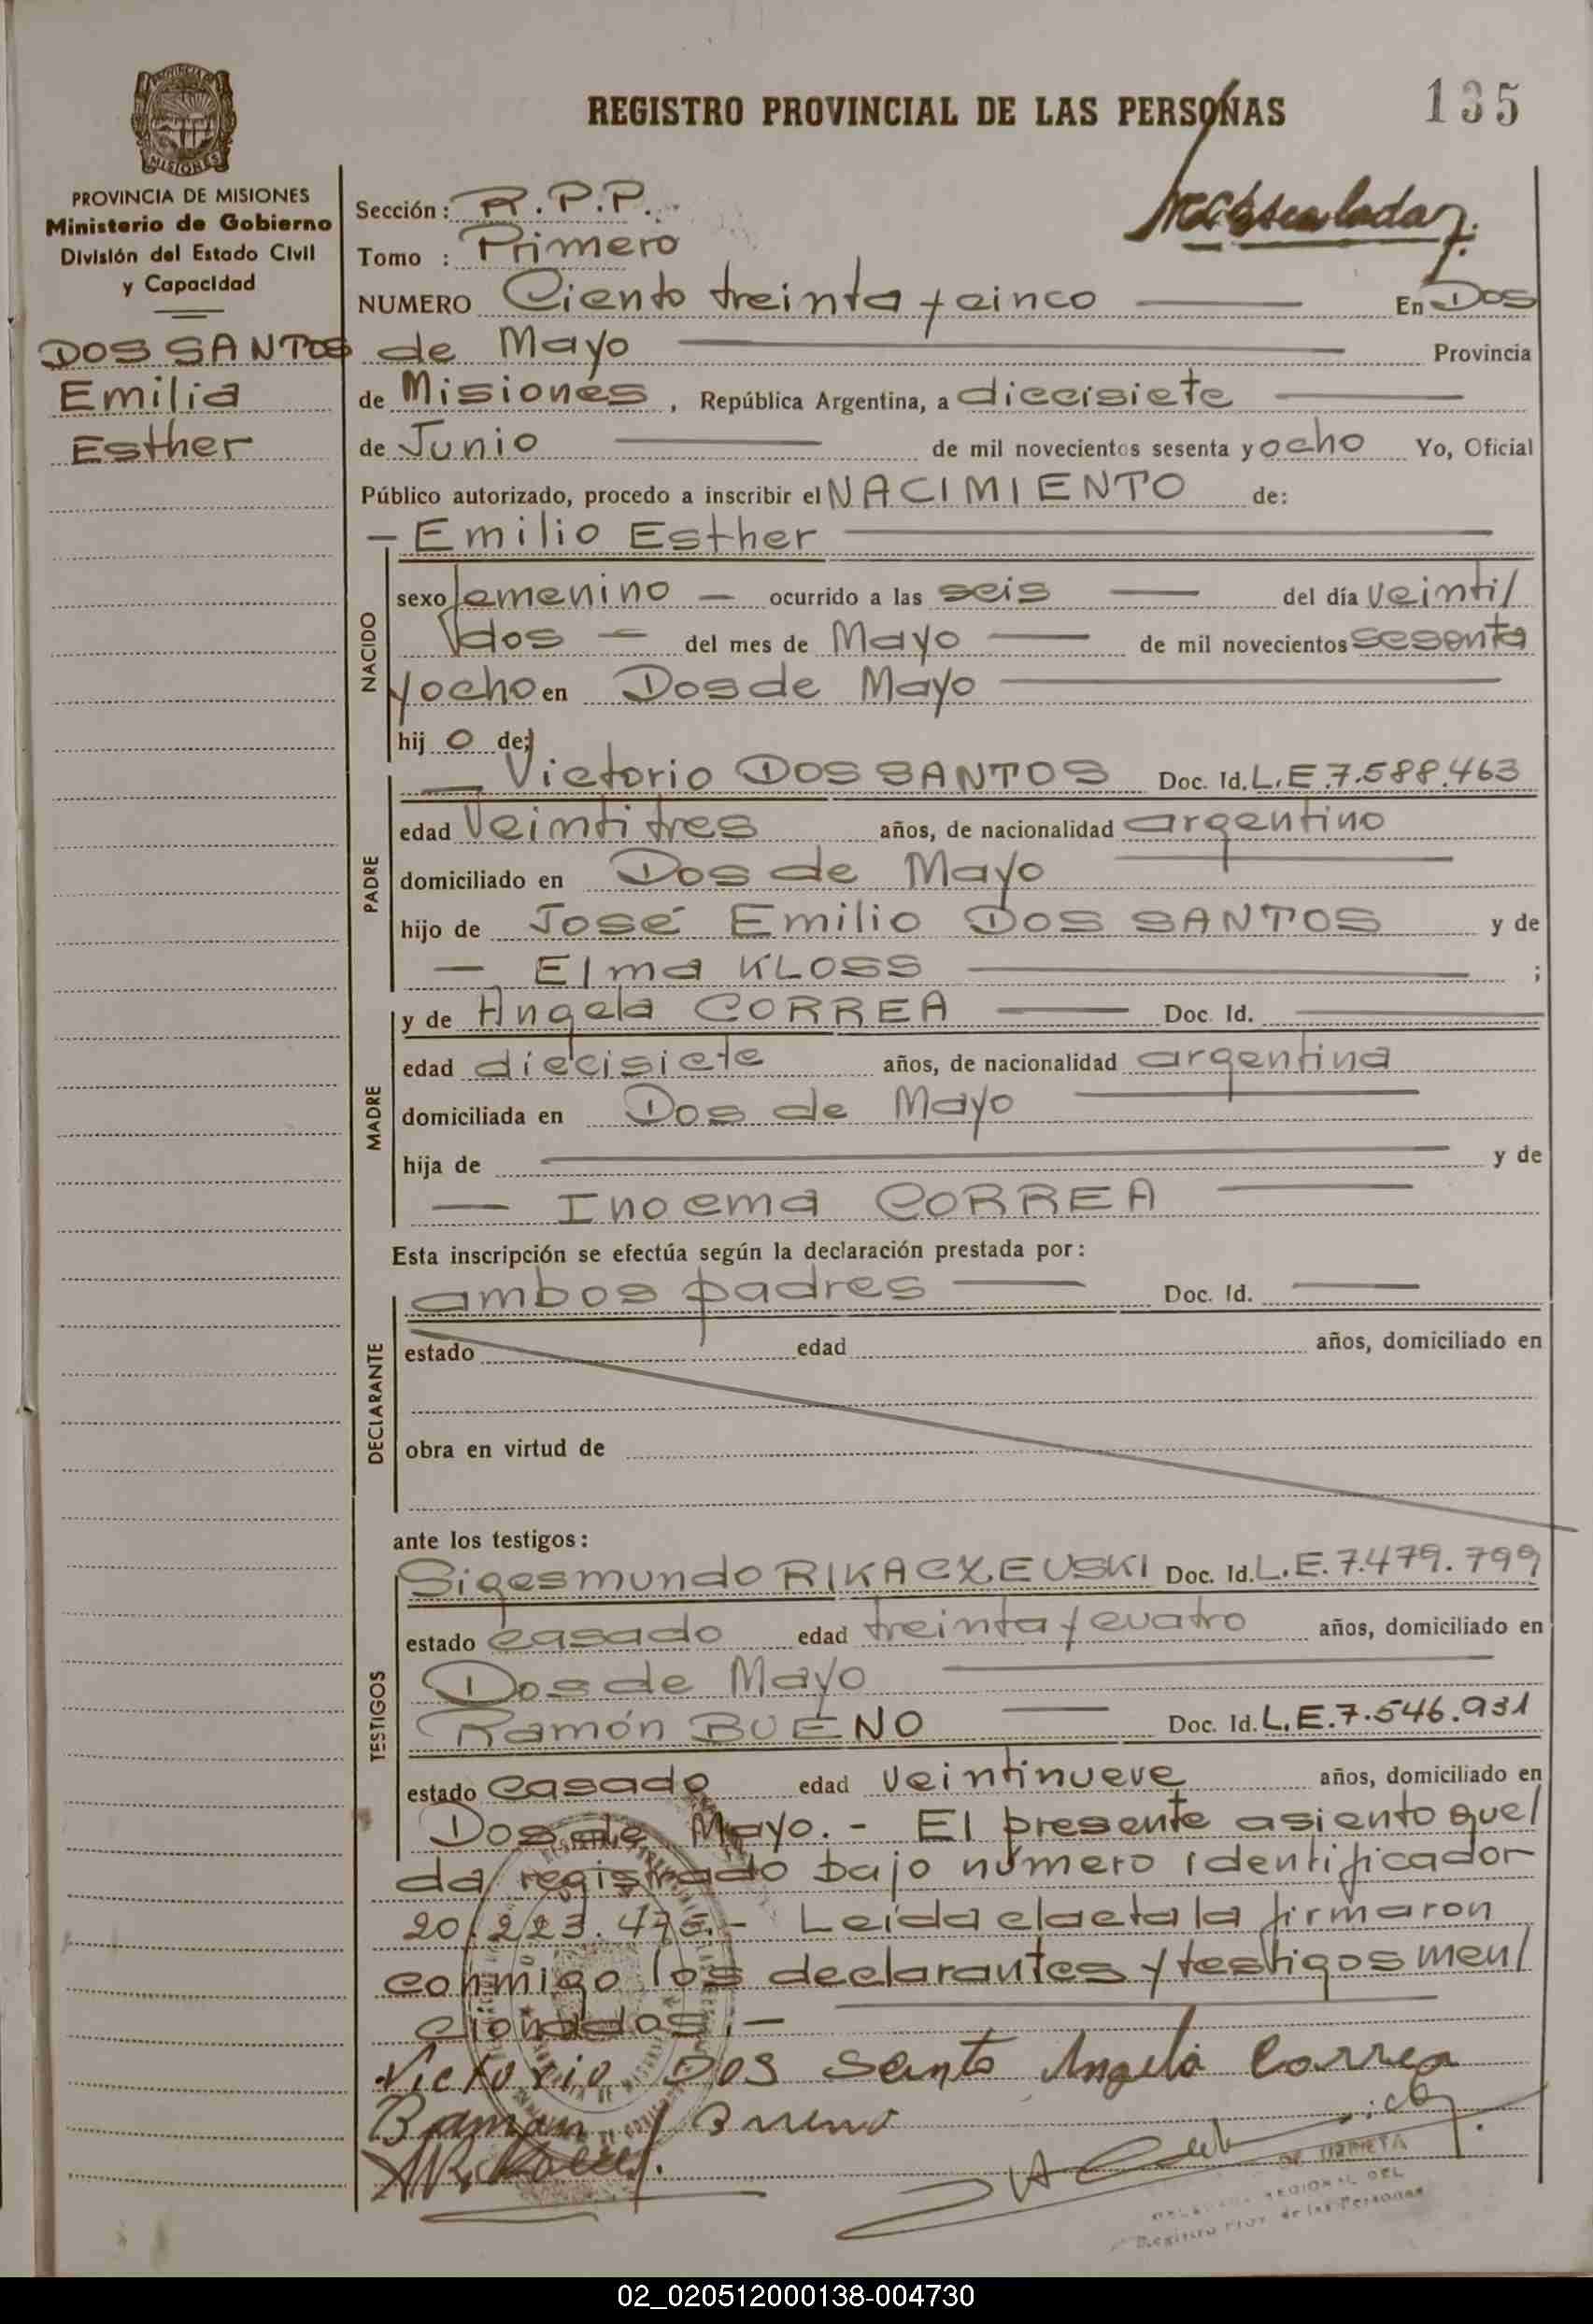 REGISTRO PROVINCIAL DE LAS PERSONAS
135
MISIONES
PROVINCIA DE MISIONES
Ministerio de Gobierno
División del Estado Civil
y Capacidad
DOS SANTOS
Emilia
Esther
Sección: R.P.P.
Tomo : Primero
NUMERO Ciento treinta y cinco En Dos
de Mayo Provincia
de Misiones, República Argentina, a diecisiete
de Junio de mil novecientos sesenta y ocho Yo, Oficial
Público autorizado, procedo a inscribir el NACIMIENTO de:
— Emilio Esther
NACIDO
sexo femenino — ocurrido a las seis — del día veinti/
/dos — del mes de Mayo — de mil novecientos sesenta
y ocho en Dos de Mayo
hij o de;
PADRE
— Victorio DOS SANTOS Doc. Id. L.E.7.588.463
edad Veintitres años, de nacionalidad argentino
domiciliado en Dos de Mayo
hijo de José Emilio DOS SANTOS y de
— Elma KLOSS ;
MADRE
y de Angela CORREA — Doc. Id. —
edad diecisiete años, de nacionalidad argentina
domiciliada en Dos de Mayo
hija de — y de
— Inoema CORREA —
Esta inscripción se efectúa según la declaración prestada por:
DECLARANTE
ambos padres — Doc. Id. —
estado edad años, domiciliado en
obra en virtud de
ante los testigos:
TESTIGOS
Sigesmundo RIKACZEUSKI Doc. Id. L.E.7.479.799
estado casado edad treinta y cuatro años, domiciliado en
Dos de Mayo
Ramón BUENO — Doc. Id. L.E.7.546.931
estado casado edad veintinueve años, domiciliado en
Dos de Mayo.- El presente asiento que/
da/ registrado bajo número identificador
20.223.475.- Leída el acta la firmaron
conmigo los declarantes y testigos men/
cionados.-
Victorio Dos Santo Angela Correa
Ramon Bueno
REGIONAL DEL
Registro Prov. de las Personas
02_020512000138-004730